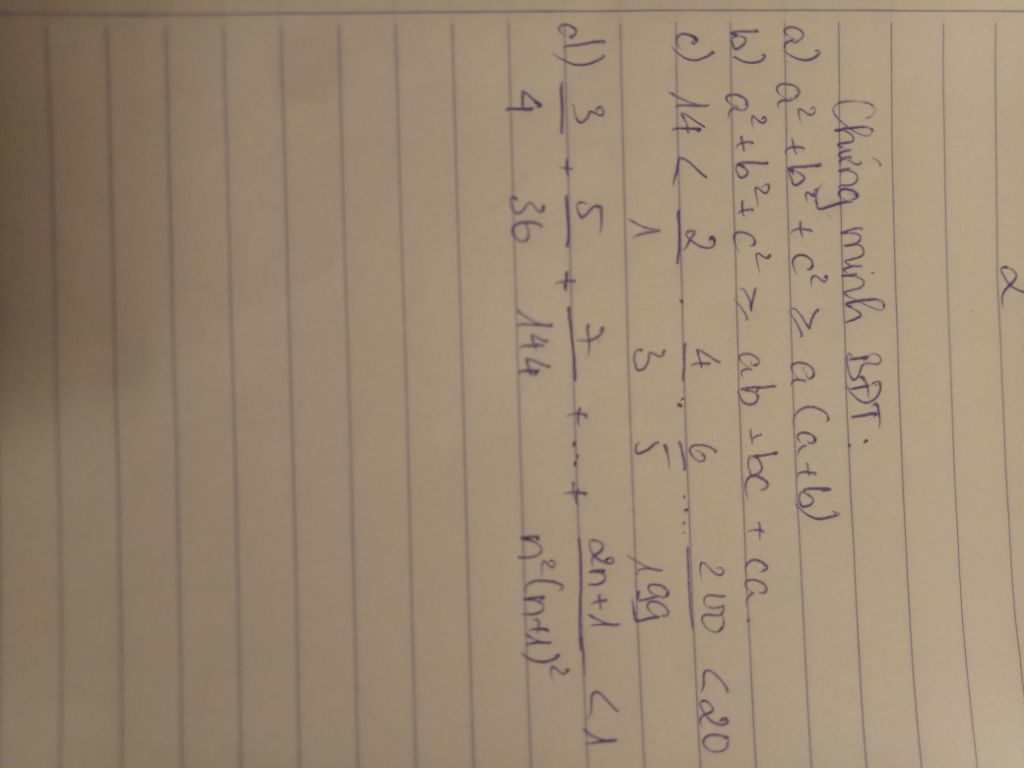 2
Chứng minh BĐT:
a) a² + b² + c² ≥ a(a+b)
b) a² + b² + c² ≥ ab + bc + ca
c) 14 < 2/1 . 4/3 . 6/5 ... 200/199 < 20
d) 3/4 + 5/36 + 7/144 + ... + 2n+1/n²(n+1)² < 1